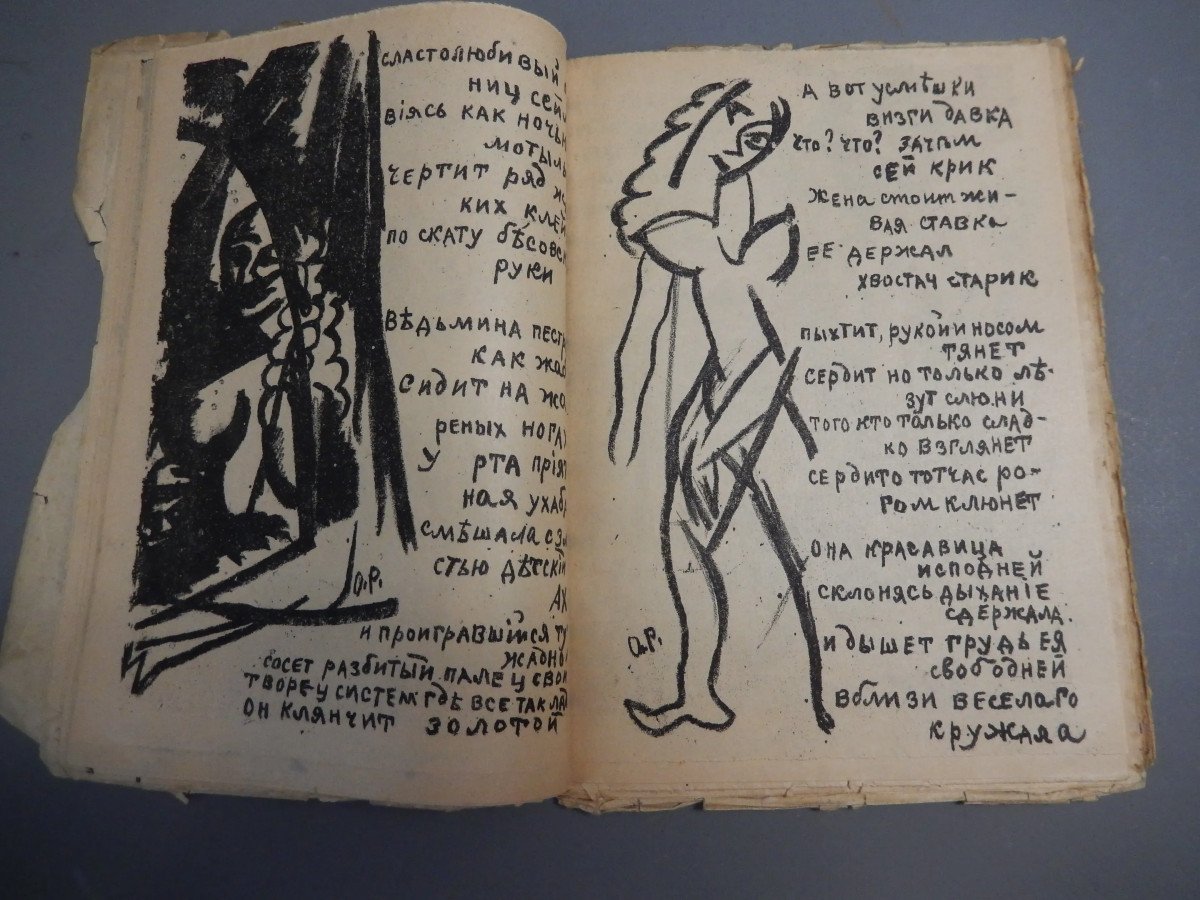 сластолюбивый
ниц сей
віясь как ночью
мотыль
чертит ряд
ких клей
по скату бѣсовск
руки
вѣдьмина пестр
как жа
сидит на жа
реных ногах
у рта прія
ная ухаб
смѣшала с зл
стью дѣтскій
Ах
и проигравшійся ту
жадно
сосет разбитый палец свой
творец систем гдѣ все так лад
он клянчит золотой
О.Р.
А вот усмѣшки
визги давка
что? что? зачѣм
сей крик
жена стоит жи-
вая ставка
ее держал
хвостач старик
пыхтит, рукой и носом
тянет
сердит но только лѣ-
зут слюни
того кто только слад-
ко взглянет
сердито тотчас ро-
гом клюнет
она красавица
исподней
склонясь дыханіе
сдержала.
и дышет грудь ея
свободней
вблизи веселаго
кружала
О.Р.